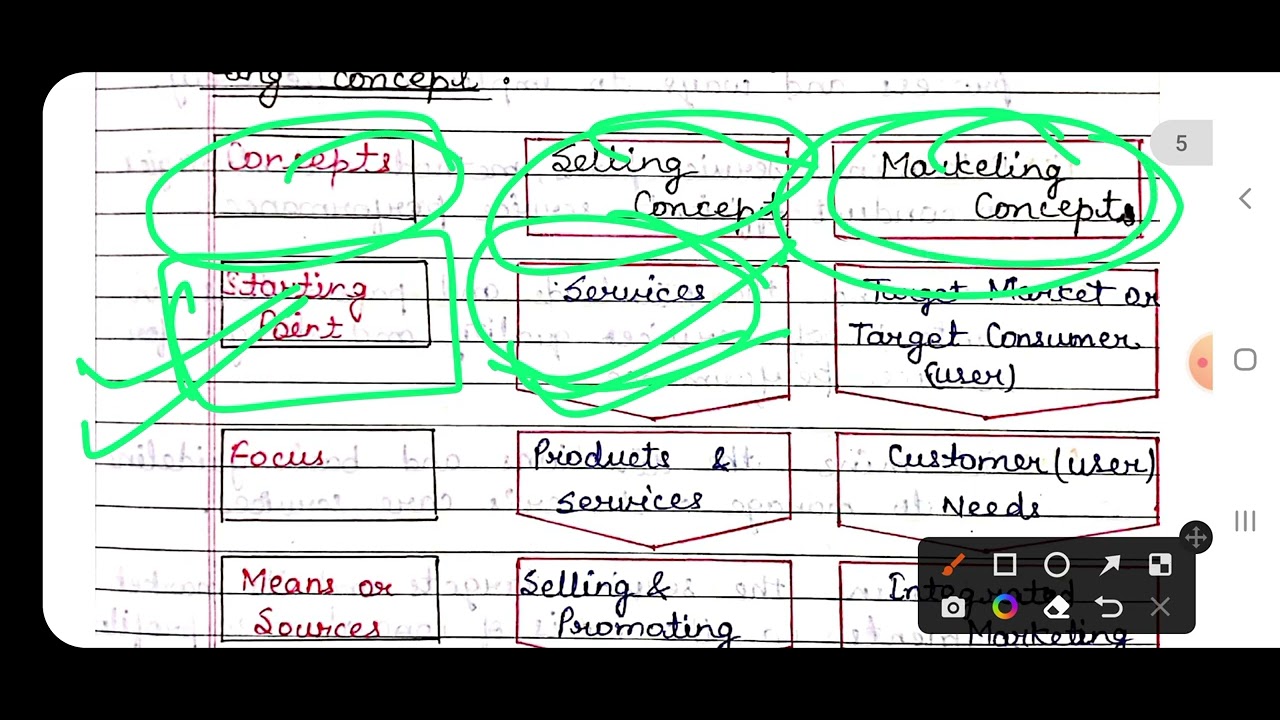 ing concept.
5
Concepts
Selling
Concept
Marketing
Concepts
Starting
Point
Services
Target Market or
Target Consumer
(user)
Focus
Products &
Services
Customer (user)
Needs
Means or
Sources
Selling &
Promoting
Integrated
Marketing